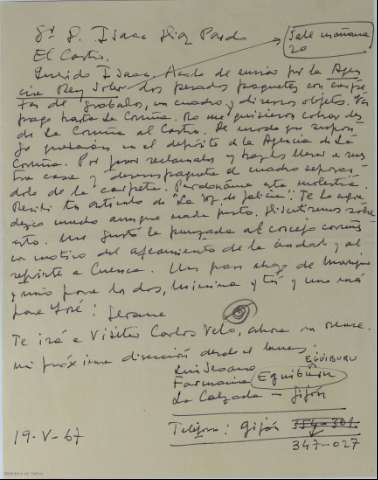 Sr. D. Isaac Díaz Pardo
Sale mañana
20
El Castro.
Querido Isaac: Acabo de enviar por la Agen
cia Rey Soler dos pesados paquetes con carpe
tas de grabados, un cuadro y diversos objetos. Va
pago hasta La Coruña. No me quisieron cobrar des
de La Coruña al Castro. De modo que supon
go quedarán en el depósito de la Agencia de La
Coruña. Por favor reclamadlos y hazlos llevar a vues
tra casa y desempaqueta el cuadro separan
dolo de la carpeta. Perdonáme esta molestia.
Recibí tu artículo de La Voz de Galicia. Te lo agra
dezco mucho aunque nada justo. Discutiremos sobre
esto. Me gustó la punzada al concejo coruñés
con motivo del afeamiento de la ciudad y al
referirte a Cuenca. Un gran abrazo de Maruja
y mío para los dos, Mimina y tú y uno más
para José:
Te irá a visitar Carlos Velo, ahora en
mi próxima dirección desde el lunes:
EGUIBURU
Luis Seoane
Farmacia Eguiburu
La Calzada – Gijón
Teléfono: Gijón 354-301
347-027
19-V-67